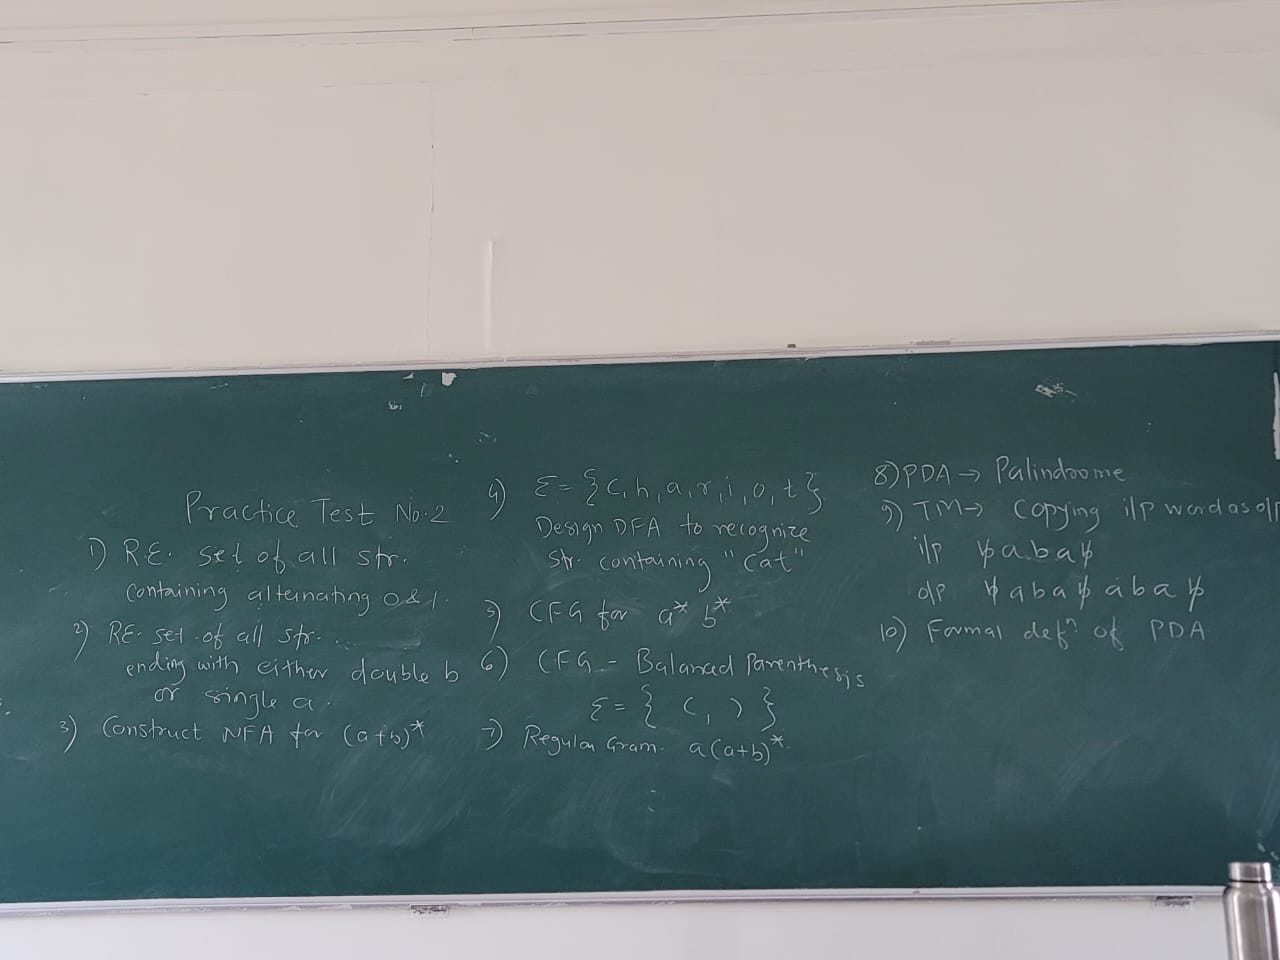 Practice Test No. 2
1) R.E. set of all str.
containing alternating 0 & 1.
2) RE. set of all str.
ending with either double b
or single a.
3) Construct NFA for (a+b)*
4) Σ = {c, h, a, r, i, o, t}
Design DFA to recognize
str. containing "Cat"
5) CFG for a* b*
6) CFG - Balanced Parenthesis
Σ = { (, ) }
7) Regular Gram. a(a+b)*.
8) PDA → Palindrome
9) TM → Copying i/p word as o/p
i/p ␢ a b a ␢
o/p ␢ a b a ␢ a b a ␢
10) Formal defⁿ of PDA